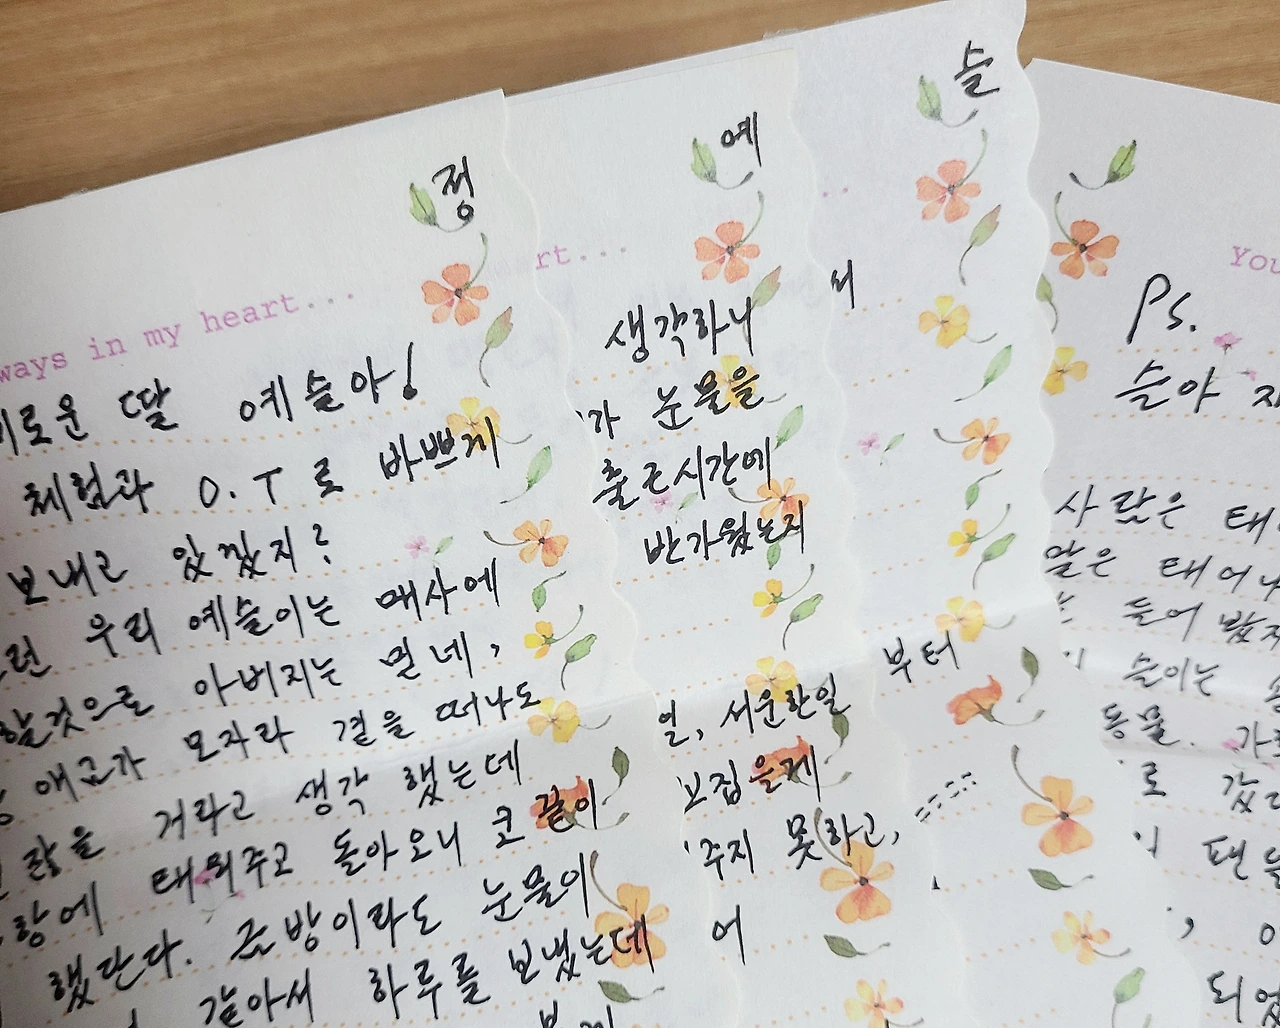 정
ways in my heart...
로운 딸 예슬아!
체험과 O.T로 바쁘게
보내고 있겠지?
우리 예슬이는 매사에
할것으로 아버지는 믿네,
애교가 모자라 곁을 떠나도
거라고 생각 했는데
태워주고 돌아오니 코끝이
했단다. 금방이라도 눈물이
같아서 하루를 보냈는데
예
rt...
생각하니
가 눈물을
출근시간에
반가웠는지
일, 서운한일
보집을게
주지 못하고,
어
슬
서
부터
You
Ps.
슬아
사람은 태
말은 태어나
들어 봤지
슬이는
동물.
로 갔
되었